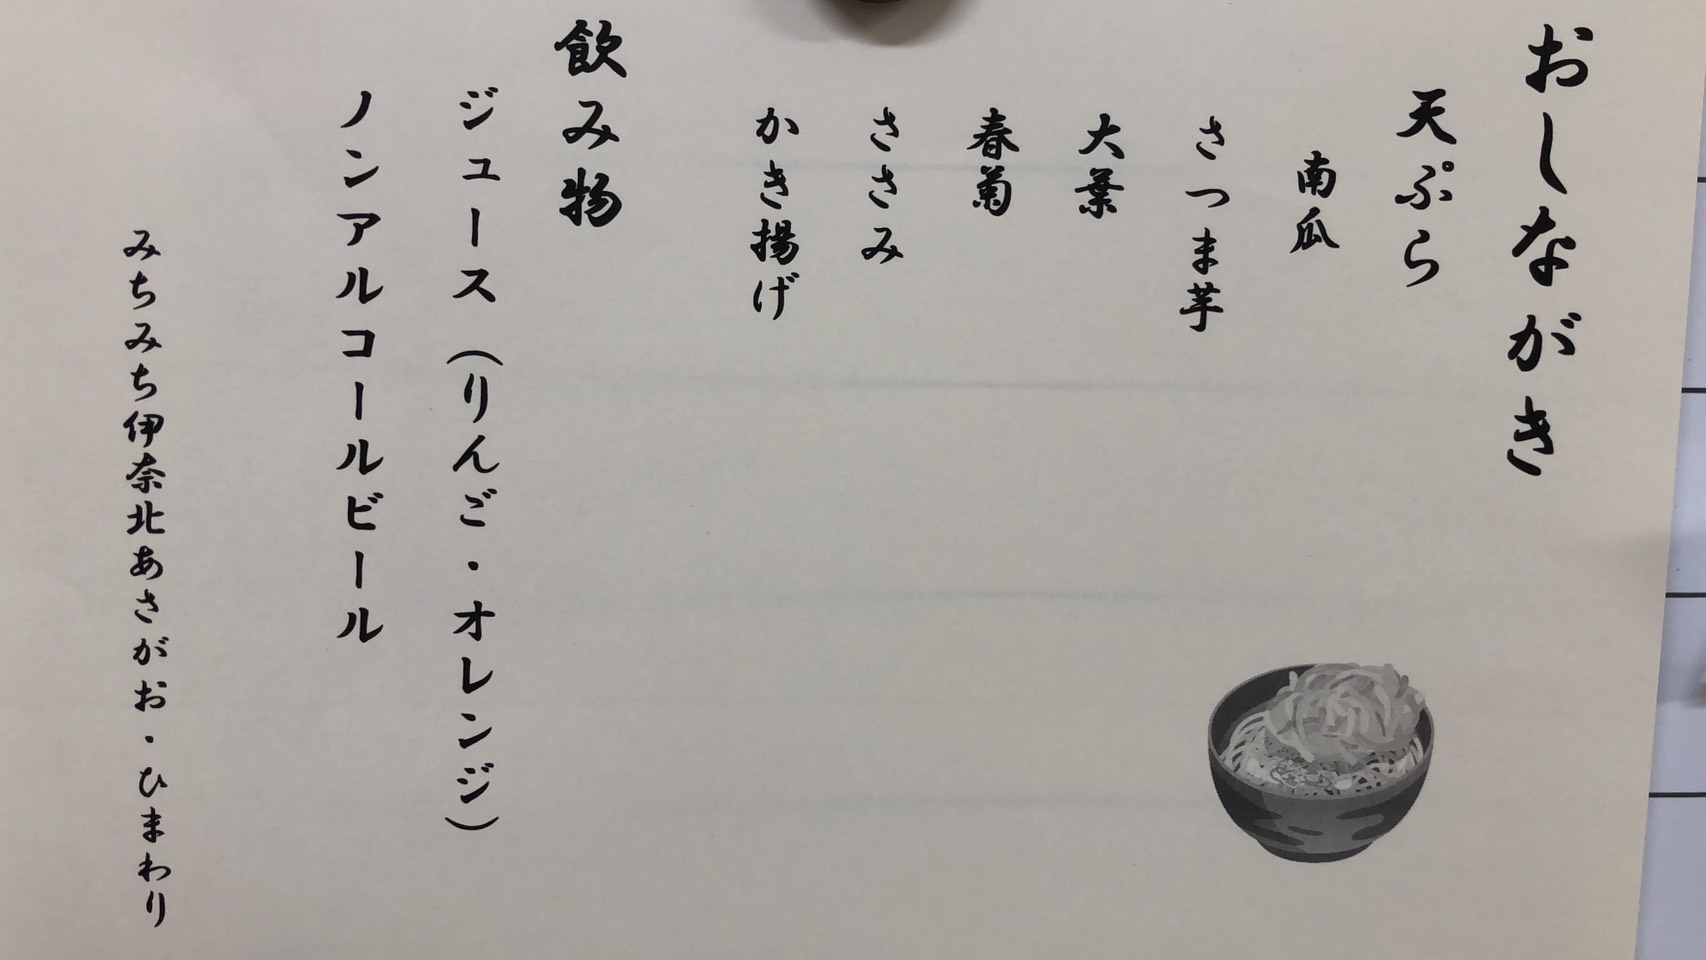 おしながき
天ぷら
南瓜
さつま芋
大葉
春菊
ささみ
かき揚げ
飲み物
ジュース（りんご・オレンジ）
ノンアルコールビール
みちみち伊奈北あさがお・ひまわり